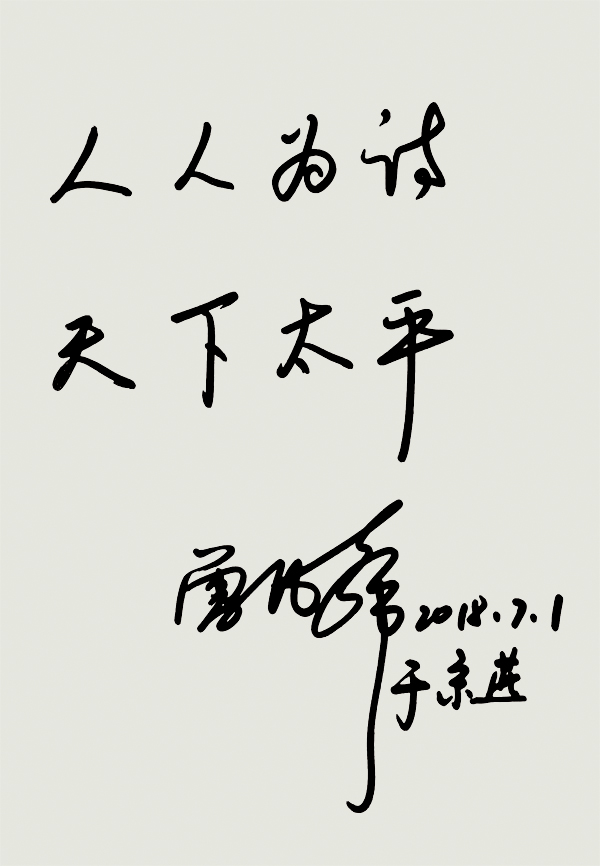 人人为诗
天下太平
2018.7.1
于京